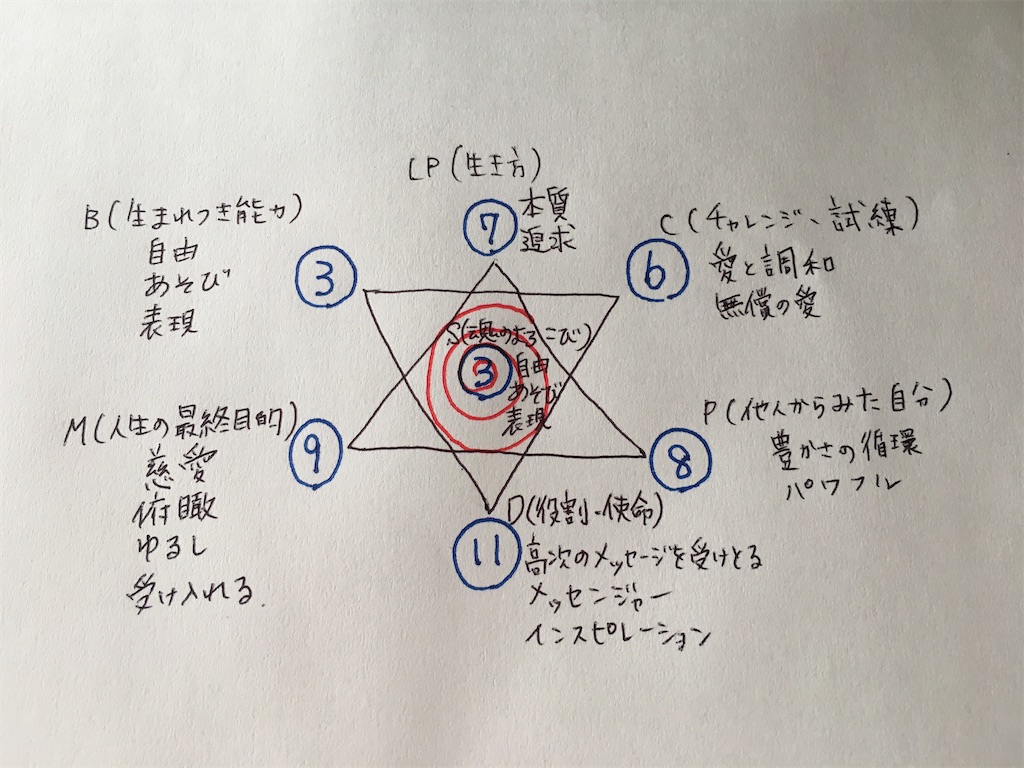 LP (生き方)
⑦
本質
追求
B (生まれつき能力)
③
自由
あそび
表現
C (チャレンジ、試練)
⑥
愛と調和
無償の愛
S(魂のよろこび)
③
自由
あそび
表現
M (人生の最終目的)
⑨
慈愛
俯瞰
ゆるし
受け入れる.
P (他人からみた自分)
⑧
豊かさの循環
パワフル
D(役割・使命)
⑪
高次のメッセージを受けとる
メッセンジャー
インスピレーション